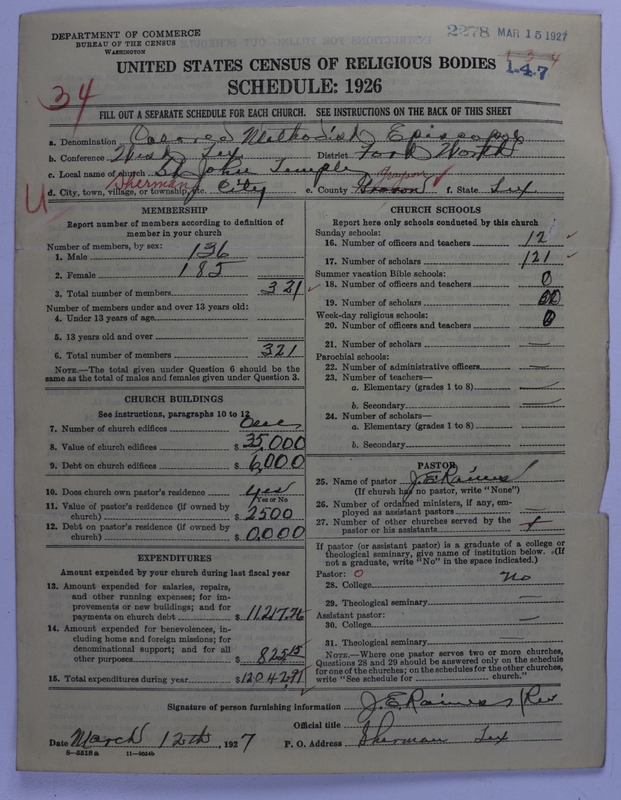 DEPARTMENT OF COMMERCE
BUREAU OF THE CENSUS
WASHINGTON
2278 MAR 15 1927
1 3 4
1.4.7
UNITED STATES CENSUS OF RELIGIOUS BODIES
SCHEDULE: 1926
34
FILL OUT A SEPARATE SCHEDULE FOR EACH CHURCH. SEE INSTRUCTIONS ON THE BACK OF THIS SHEET
a. Denomination Colored Methodist Episcopal
b. Conference West Tex District Fort Worth
c. Local name of church St John Temple
d. City, town, village, or township, etc. Sherman City e. County Grayson f. State Tex
U
MEMBERSHIP
Report number of members according to definition of member in your church
Number of members, by sex:
1. Male 136
2. Female 185
3. Total number of members 321
Number of members under and over 13 years old:
4. Under 13 years of age
5. 13 years old and over
6. Total number of members 321
NOTE.—The total given under Question 6 should be the same as the total of males and females given under Question 3.
CHURCH BUILDINGS
See instructions, paragraphs 10 to 12
7. Number of church edifices
8. Value of church edifices $ 35,000
9. Debt on church edifices $ 6,000
10. Does church own pastor's residence yes
Yes or No
11. Value of pastor's residence (if owned by church) $ 2500
12. Debt on pastor's residence (if owned by church) $ 0,000
EXPENDITURES
Amount expended by your church during last fiscal year
13. Amount expended for salaries, repairs, and other running expenses; for improvements or new buildings; and for payments on church debt $ 11,217.76
14. Amount expended for benevolences, including home and foreign missions; for denominational support; and for all other purposes $ 825.15
15. Total expenditures during year $ 12042.91
CHURCH SCHOOLS
Report here only schools conducted by this church
Sunday schools:
16. Number of officers and teachers 12
17. Number of scholars 121
Summer vacation Bible schools:
18. Number of officers and teachers 0
19. Number of scholars 00
Week-day religious schools:
20. Number of officers and teachers 0
21. Number of scholars
Parochial schools:
22. Number of administrative officers
23. Number of teachers—
a. Elementary (grades 1 to 8)
b. Secondary
24. Number of scholars—
a. Elementary (grades 1 to 8)
b. Secondary
PASTOR
25. Name of pastor J. E. Raines
(If church has no pastor, write "None")
26. Number of ordained ministers, if any, employed as assistant pastors
27. Number of other churches served by the pastor or his assistants
If pastor (or assistant pastor) is a graduate of a college or theological seminary, give name of institution below. (If not a graduate, write "No" in the space indicated.)
Pastor: 0
28. College no
29. Theological seminary
Assistant pastor:
30. College
31. Theological seminary
NOTE.—Where one pastor serves two or more churches, Questions 28 and 29 should be answered only on the schedule for one of the churches; on the schedules for the other churches, write "See schedule for ______ church."
Signature of person furnishing information J. E. Raines (Rev
Official title
Date March 12th, 1927 P. O. Address Sherman Tex
8-5518a 11-9024b